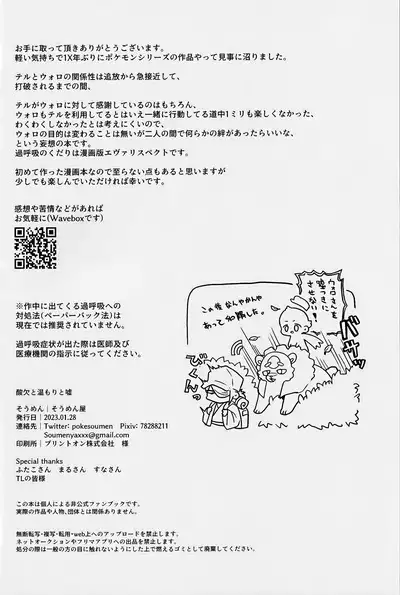 お手に取って頂きありがとうございます。
軽い気持ちで1X年ぶりにポケモンシリーズの作品やって見事に沼りました。
テルとウォロの関係性は追放から急接近して、
打破されるまでの間、
テルがウォロに対して感謝しているのはもちろん、
ウォロもテルを利用してるとはいえ一緒に行動してる道中1ミリも楽しくなかった、
わくわくしなかったとは考えにくいので、
ウォロの目的は変わることは無いが二人の間で何らかの絆があったらいいな、
という妄想の本です。
過呼吸のくだりは漫画版エヴァリスペクトです。
初めて作った漫画本なので至らない点もあると思いますが
少しでも楽しんでいただければ幸いです。
感想や苦情などがあれば
お気軽に(Waveboxです)
ウォロさんを
傷つき
させない!
この後なんやかんや
あって和解した。
※作中に出てくる過呼吸への
対処法(ペーパーバック法)は
現在では推奨されていません。
過呼吸症状が出た際は医師及び
医療機関の指示に従ってください。
酸欠と温もりと嘘
そうめん|そうめん屋
発行日|2023.01.28
連絡先|Twitter: pokesoumen Pixiv: 78288211
Soumenyaxxx@gmail.com
印刷所|プリントオン株式会社 様
Special thanks
ふたこさん まるさん すなさん
TLの皆様
この本は個人による非公式ファンブックです。
実際の作品や人物、団体とは関係ありません。
無断転写・複写・転用・web上へのアップロードを禁止します。
ネットオークションやフリマアプリへの出品を禁止します。
処分の際は一般の方の目に触れないようにした上で燃えるゴミとして廃棄してください。